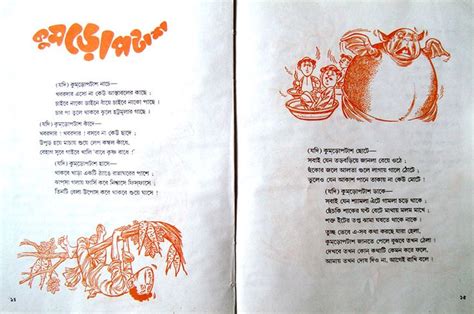 কুমড়োপটাশ
(যদি) কুমড়োপটাশ নাচে—
খবরদার এসো না কেউ আস্তাবলের কাছে ;
চাইবে নাকো ডাইনে বাঁয়ে চাইবে নাকো পাছে ;
চার পা তুলে থাকবে ঝুলে হট্টমুলার গাছে !
(যদি) কুমড়োপটাশ কাঁদে—
খবরদার ! খবরদার ! বসবে না কেউ ছাদে ;
উপুড় হয়ে মাচায় শুয়ে লেপ কম্বল কাঁধে,
বেহাগ সুরে গাইবে খালি 'রাধে কৃষ্ণ রাধে' !
(যদি) কুমড়োপটাশ হাসে—
থাকবে খাড়া একটি ঠ্যাঙে রান্নাঘরের পাশে ;
ঝাপসা গলায় ফার্সি কবে নিশ্বাসে ফিস্‌ফাসে ;
তিনটি বেলা উপোস করে থাকবে শুয়ে ঘাসে !
১২
(যদি) কুমড়োপটাশ ছোটে—
সবাই যেন তড়বড়িয়ে জানলা বেয়ে ওঠে ;
হুঁকোর জলে আলতা গুলে লাগায় গালে ঠোঁটে ;
ভুলেও যেন আকাশ পানে তাকায় না কেউ মোটে !
(যদি) কুমড়োপটাশ ডাকে—
সবাই যেন শ্যামলা এঁটে গামলা চড়ে থাকে ;
ছেঁচকি শাকের ঘণ্ট বেটে মাথায় মলম মাখে ;
শক্ত ইঁটের তপ্ত ঝামা ঘষতে থাকে নাকে !
তুচ্ছ ভেবে এ-সব কথা করছে যারা হেলা,
কুমড়োপটাশ জানতে পেলে বুঝবে তখন ঠেলা ।
দেখবে তখন কোন্ কথাটি কেমন করে ফলে,
আমায় তখন দোষ দিও না, আগেই রাখি বলে ।
১৩